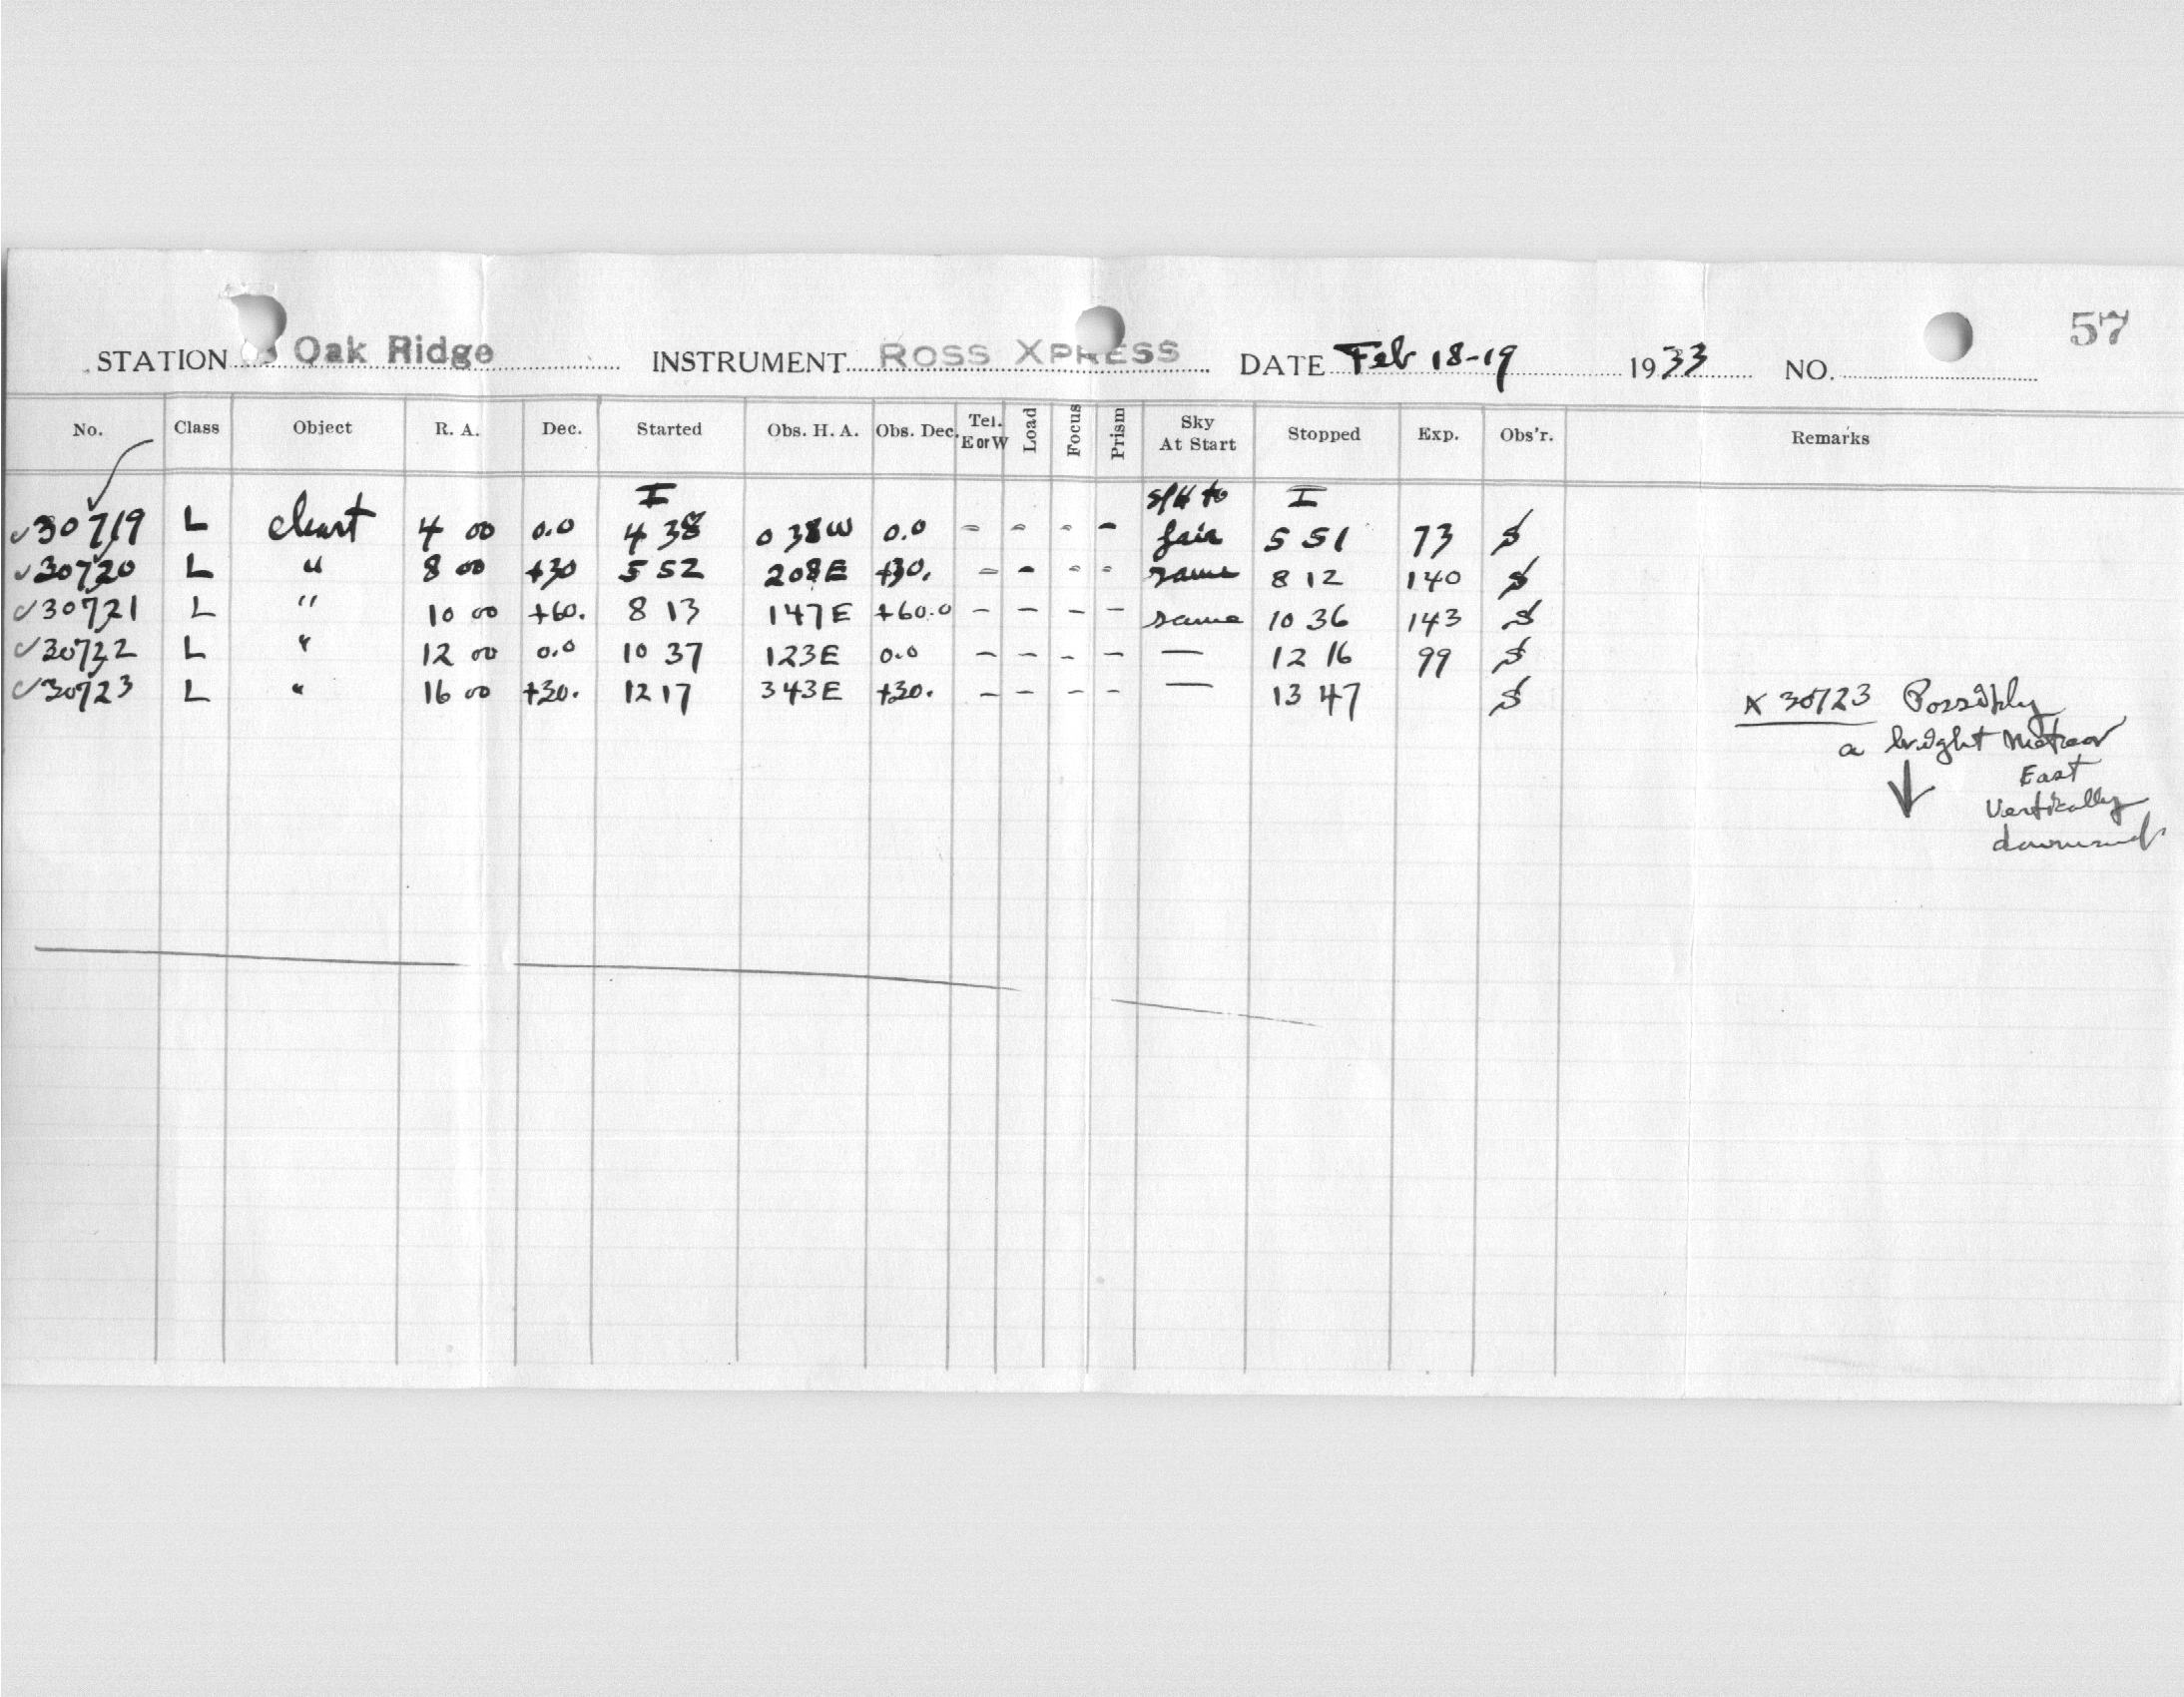 57
STATION Oak Ridge INSTRUMENT ROSS XPRESS DATE Feb 18-19 1933 NO.
No. Class Object R. A. Dec. Started Obs. H. A. Obs. Dec. Tel. E or W Load Focus Prism Sky At Start Stopped Exp. Obs'r. Remarks
I to I
30719 L chart 4 00 0.0 4 38 0 38W 0.0 - - - - fair 5 51 73 S
30720 L " 8 00 +30 5 52 208E +30. - - - - same 8 12 140 S
30721 L " 10 00 +60. 8 13 147E +60.0 - - - - same 10 36 143 S
30722 L " 12 00 0.0 10 37 123E 0.0 - - - - — 12 16 99 S
30723 L " 16 00 +30. 12 17 343E +30. - - - - — 13 47 S
X 30723 Possibly
a bright Meteor
↓ East
Vertically
downward